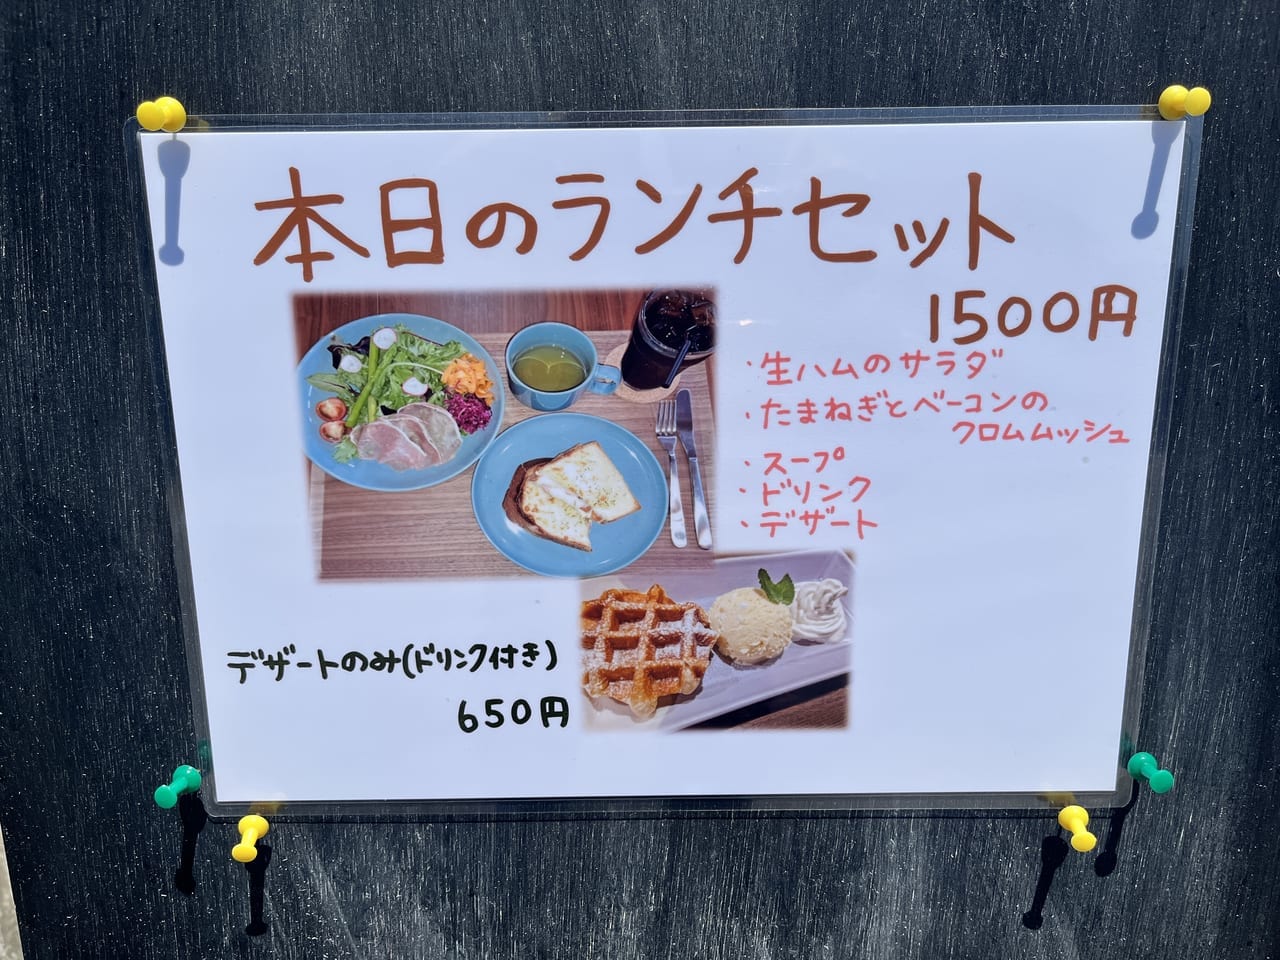 本日のランチセット
1500円
・生ハムのサラダ
・たまねぎとベーコンの
クロムムッシュ
・スープ
・ドリンク
・デザート
デザートのみ(ドリンク付き)
650円